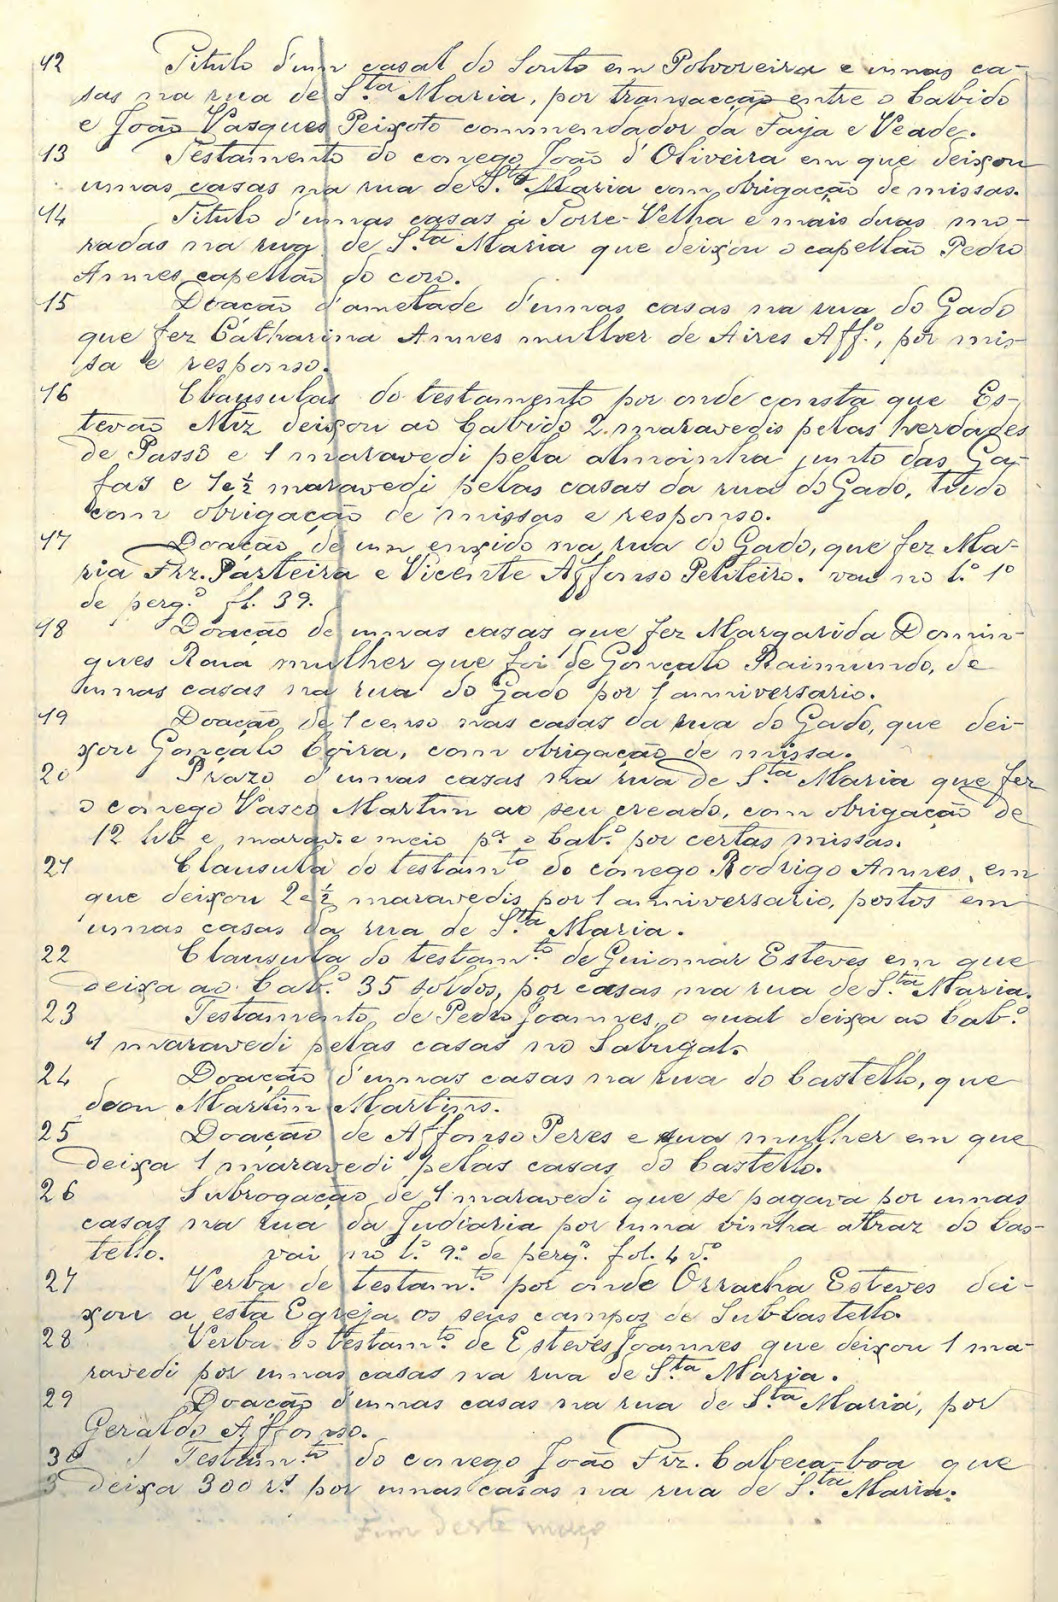 12 Titulo d'um casal do Souto em Polvoreira e umas ca-
sas na rua de S.ta Maria, por transacção entre o Cabido
e João Vasques Peixoto commendador da Faya e Veade.
13 Testamento do conego João d'Oliveira em que deixou
umas casas na rua de S.ta Maria com obrigação de missas.
14 Titulo d'umas casas á Torre-Velha e mais duas mo-
radas na rua de S.ta Maria que deixou o capellão Pedro
Annes capellão do coro.
15 Doação d'ametade d'umas casas na rua do Gado
que fez Catharina Annes mulher de Aires Aff.o, por mis-
sa e responso.
16 Clausulas do testamento por onde consta que Es-
tevão Mrz deixou ao Cabido 2 maravedis pelas herdades
de Passô e 1 maravedi pela almoinha junto das Ga-
fas e 1 e ½ maravedi pelas casas da rua do Gado, tudo
com obrigação de missas e responso.
17 Doação de um enxido na rua do Gado, que fez Ma-
ria Frz. Parteira e Vicente Affonso Peliteiro. vai no l.o 1o
de perg.o fl. 39.
18 Doação de umas casas que fez Margarida Domin-
gues Rata mulher que foi de Gonçalo Raimundo, de
umas casas na rua do Gado por 1 anniversario.
19 Doação de 1 censo nas casas da rua do Gado, que dei-
xou Gonçalo Coira, com obrigação de missa.
20 Prazo d'umas casas na rua de S.ta Maria que fez
o conego Vasco Martim ao seu creado, com obrigação de
12 lib e marav. e meio p.a o Cab.o por certas missas.
21 Clausula do testam.to do conego Rodrigo Annes, em
que deixou 2 e ½ maravedis por 1 anniversario, postos em
umas casas da rua de S.ta Maria.
22 Clausula do testam.to de Guiomar Esteves em que
deixa ao Cab.o 35 soldos, por casas na rua de S.ta Maria.
23 Testamento de Pedro Joannes, o qual deixa ao Cab.o
1 maravedi pelas casas no Sabugal.
24 Doação d'umas casas na rua do Castello, que
doou Martim Martins.
25 Doação de Affonso Peres e sua mulher em que
deixa 1 maravedi pelas casas do Castello.
26 Subrogação de 1 maravedi que se pagava por umas
casas na rua da Judiaria por uma vinha atraz do Cas-
tello. vai no l.o 9.o de perg.o fol. 4 v.o
27 Verba de testam.to por onde Orracha Esteves dei-
xou a esta Egreja os seus campos de Subcastello.
28 Verba do testam.to de Esteves Joannes que deixou 1 ma-
ravedi por umas casas na rua de S.ta Maria.
29 Doação d'umas casas na rua de S.ta Maria, por
Geraldo Affonso.
30 Testam.to do conego João Frz. Cabeca-boa que
deixa 300 r.s por umas casas na rua de S.ta Maria.
Fim deste maço